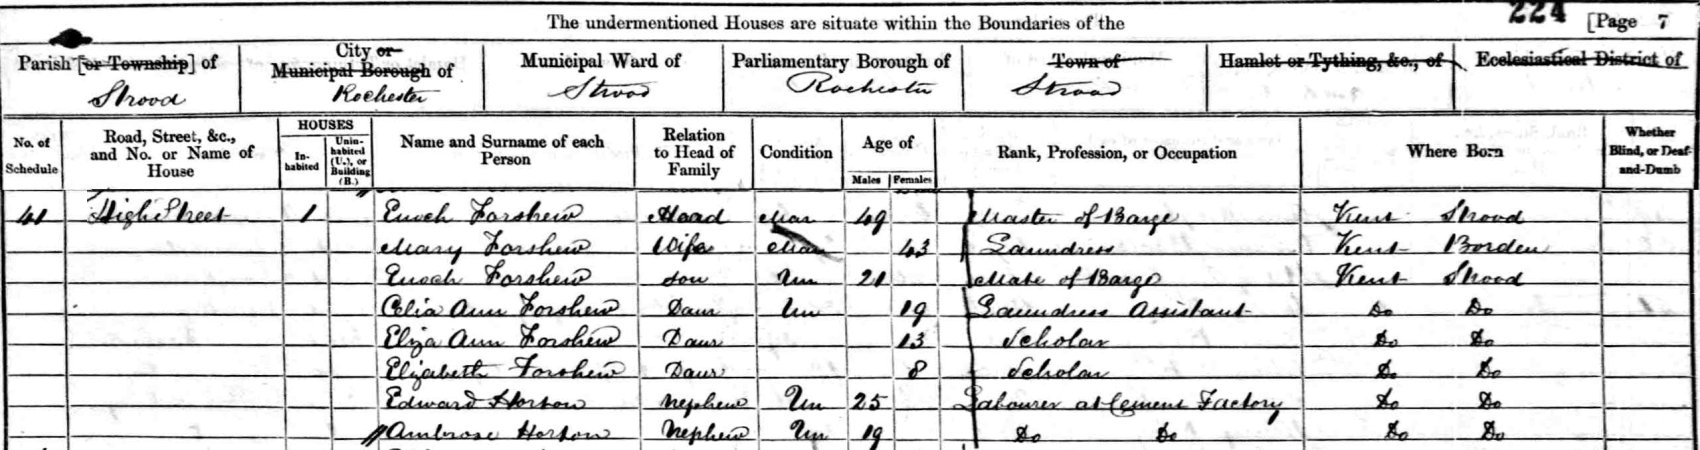 The undermentioned Houses are situate within the Boundaries of the 224 [Page 7
Parish [or Township] of Strood City or Municipal Borough of Rochester Municipal Ward of Strood Parliamentary Borough of Rochester Town of Strood Hamlet or Tything, &c., of Ecclesiastical District of
No. of Schedule Road, Street, &c., and No. or Name of House HOUSES In-habited Unin-habited (U.), or Building (B.) Name and Surname of each Person Relation to Head of Family Condition Age of Males Females Rank, Profession, or Occupation Where Born Whether Blind, or Deaf-and-Dumb
41 High Street 1 Enoch Forshew Head Mar 49 Master of Barge Kent Strood
Mary Forshew Wife Mar 43 Laundress Kent Borden
Enoch Forshew Son Un 21 Mate of Barge Kent Strood
Celia Ann Forshew Daur Un 19 Laundress Assistant Do Do
Eliza Ann Forshew Daur 13 Scholar Do Do
Elizabeth Forshew Daur 8 Scholar Do Do
Edward Horton Nephew Un 25 Labourer at Cement Factory Do Do
Ambrose Horton Nephew Un 19 Do Do Do Do